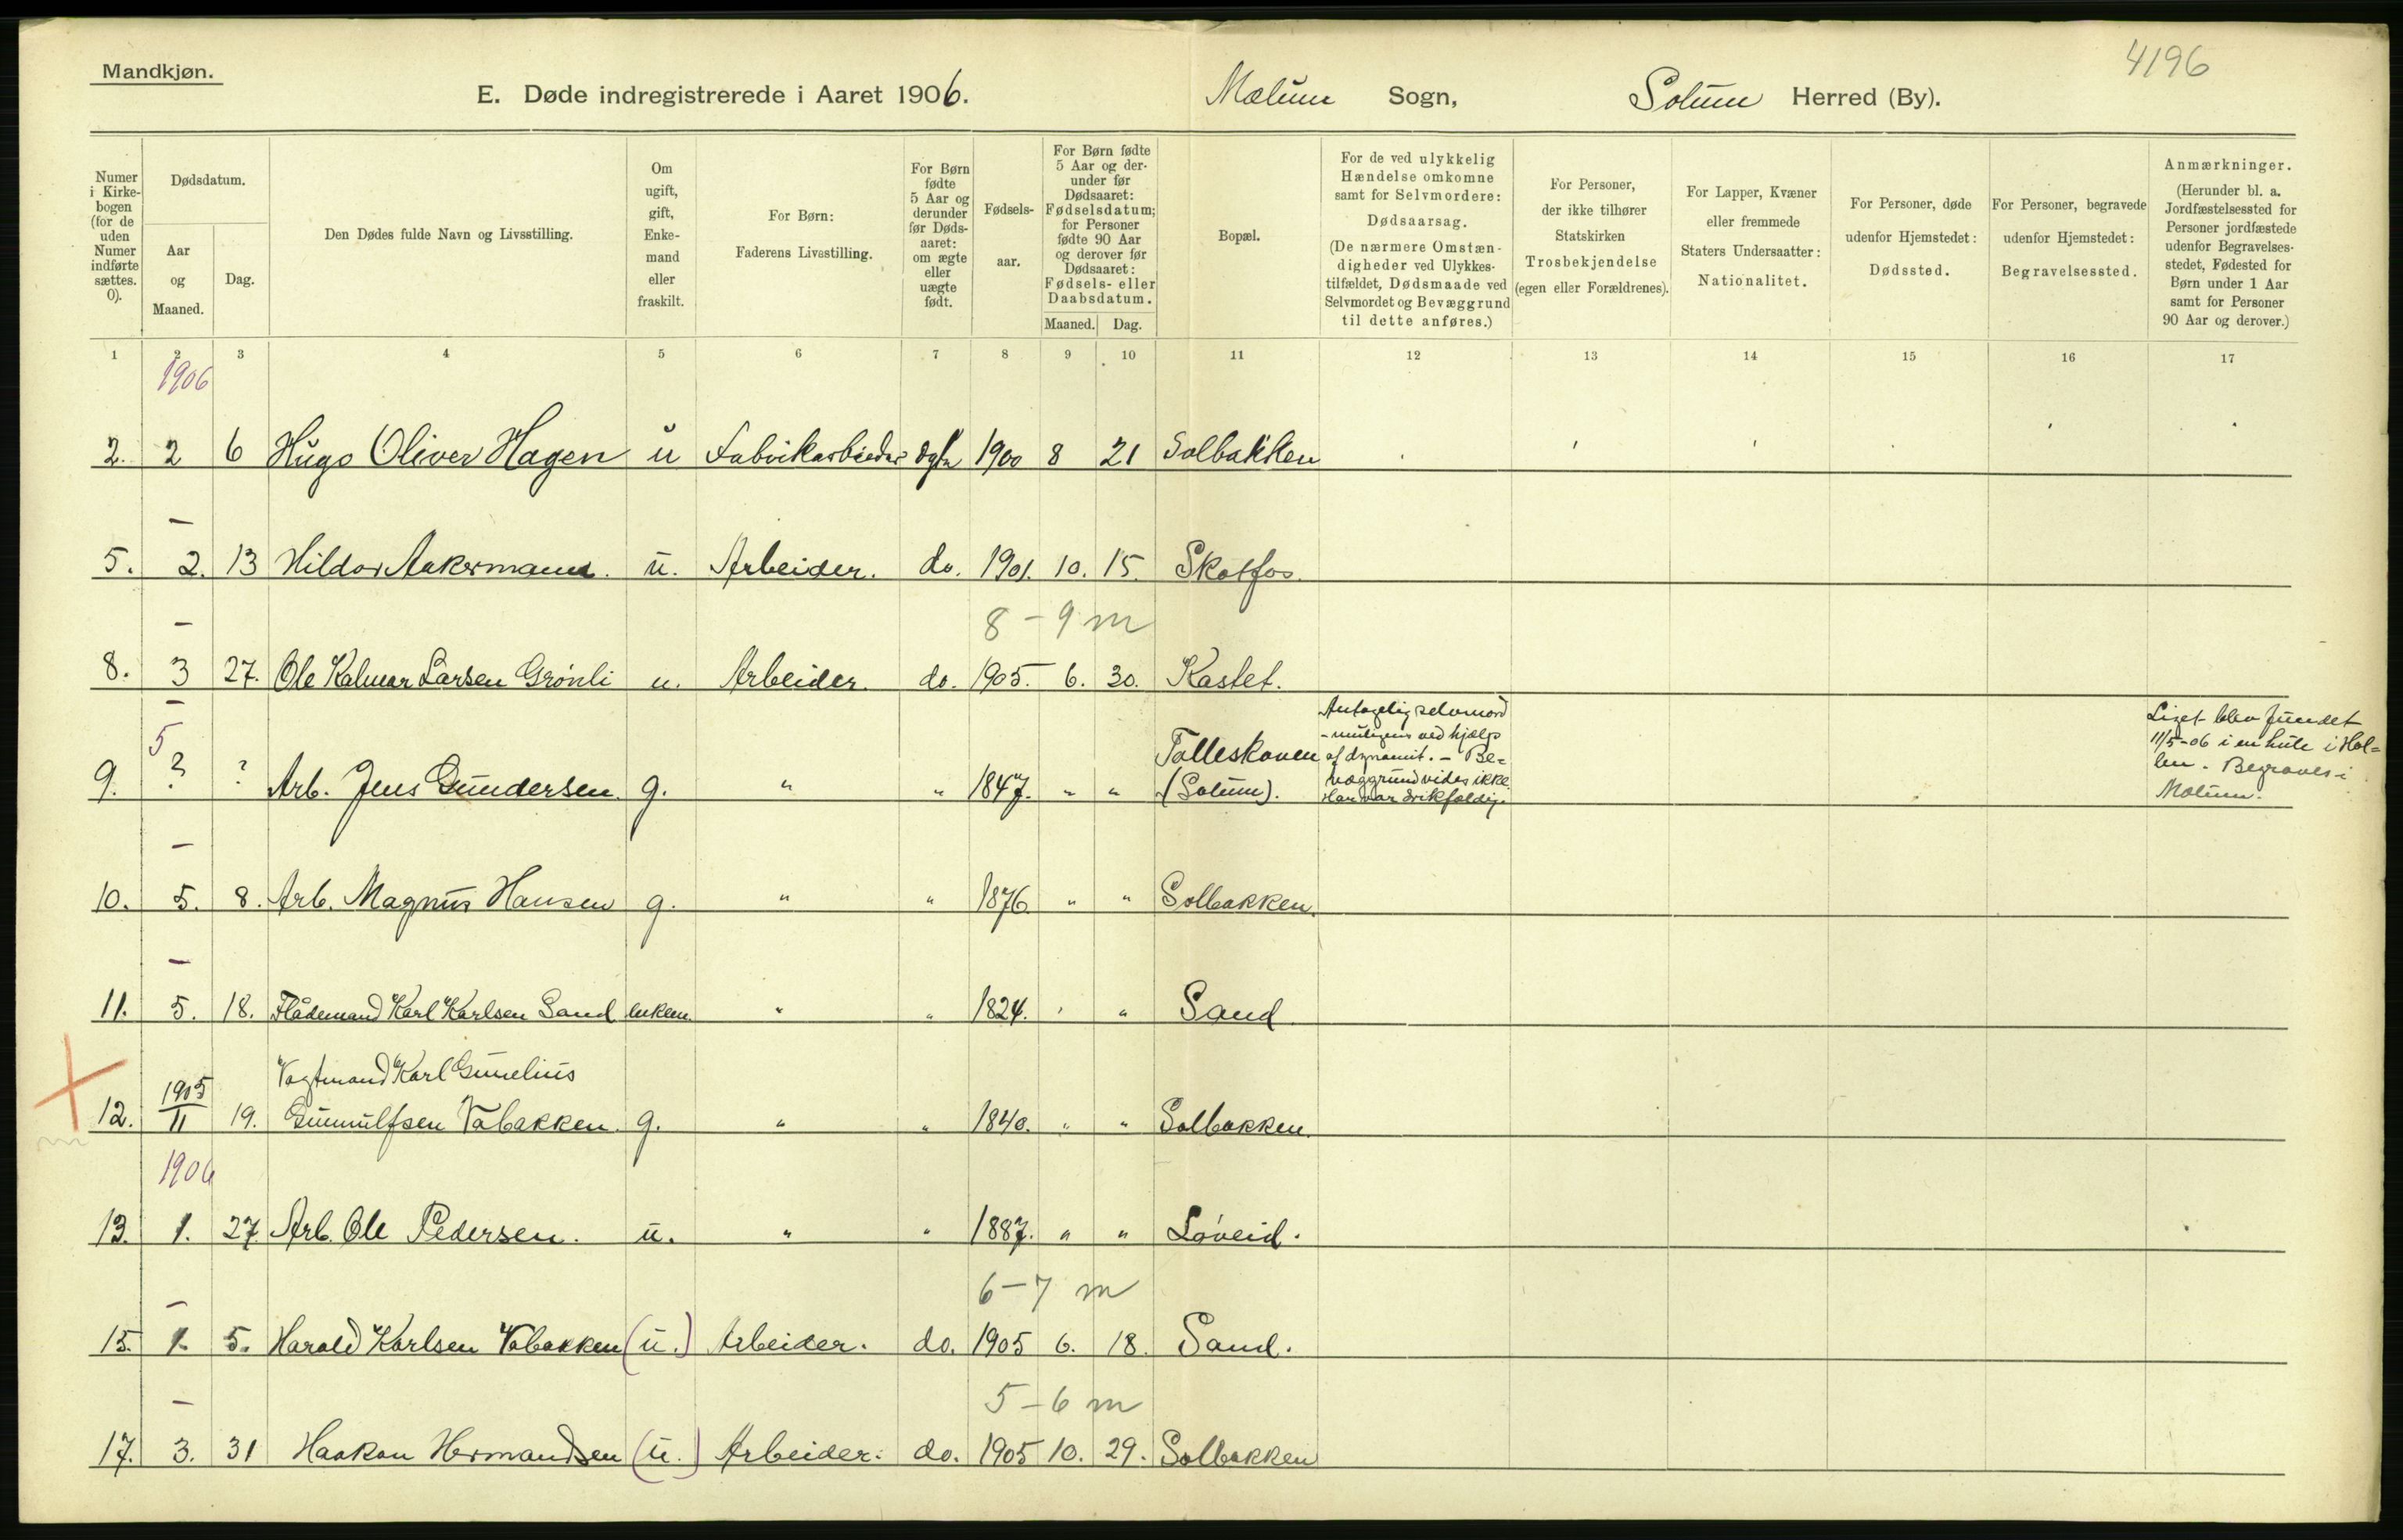 4196
Mandkjøn.
E. Døde indregistrerede i Aaret 1906. Mælum Sogn, Solum Herred (By).
Numer i Kirkebogen (for de uden Numer indførte sættes. 0).
Dødsdatum.
Aar og Maaned.
Dag.
Den Dødes fulde Navn og Livsstilling.
Om ugift, gift, Enkemand eller fraskilt.
For Børn: Faderens Livsstilling.
For Børn fødte 5 Aar og derunder før Dødsaaret: om ægte eller uægte født.
Fødselsaar.
For Børn fødte 5 Aar og derunder før Dødsaaret: Fødselsdatum; for Personer fødte 90 Aar og derover før Dødsaaret: Fødsels- eller Daabsdatum.
Maaned. Dag.
Bopæl.
For de ved ulykkelig Hændelse omkomne samt for Selvmordere: Dødsaarsag. (De nærmere Omstændigheder ved Ulykkestilfældet, Dødsmaade ved Selvmordet og Bevæggrund til dette anføres.)
For Personer, der ikke tilhører Statskirken Trosbekjendelse (egen eller Forældrenes).
For Lapper, Kvæner eller fremmede Staters Undersaatter: Nationalitet.
For Personer, døde udenfor Hjemstedet: Dødssted.
For Personer, begravede udenfor Hjemstedet: Begravelsessted.
Anmærkninger. (Herunder bl. a. Jordfæstelsessted for Personer jordfæstede udenfor Begravelsesstedet, Fødested for Børn under 1 Aar samt for Personer 90 Aar og derover.)
1 2 3 4 5 6 7 8 9 10 11 12 13 14 15 16 17
1906
2. 2 6 Hugo Oliver Hagen u Fabrikarbieder 1900 8 21 Solbakken
–
5. 2. 13 Hildor Aakermann. u. Arbeider. do. 1901. 10. 15. Skotfos.
– 8 – 9 m
8. 3 27. Ole Kalmar Larsen Grønli u. Arbeider. do. 1905. 6. 30. Kastet.
–
5
9. ? ? Arb. Jens Gundersen. g. " " 1847. " " Tolleskoven (Solum).
Antagelig selvmord
- muligens ved hjælp
af dynamit. - Be-
væggrund vides ikke
Han var drikfældig.
Liget blev fundet
11/5-06 i en hule i Hol-
len. Begraves i
Mælum.
–
10. 5. 8. Arb. Magnus Hansen g. " " 1876. " " Solbakken.
–
11. 5. 18. Flådemand Karl Karlsen Sand enkem. " " 1824. " " Sand
Vagtmand Karl Gunelius
12. 1905/11 19. Gunnulfsen Vabakken. g. " " 1840. " " Solbakken.
m
1906
13. 1. 27. Arb. Ole Pedersen. u. " " 1887. " " Løveid.
6 – 7 m
–
15. 1. 5. Harald Karlsen Vabakken (u.) Arbeider. do. 1905 6. 18. Sand.
– 5 – 6 m
17. 3. 31 Haakon Hermandsen (u.) Arbeider. do. 1905 10. 29. Solbakken